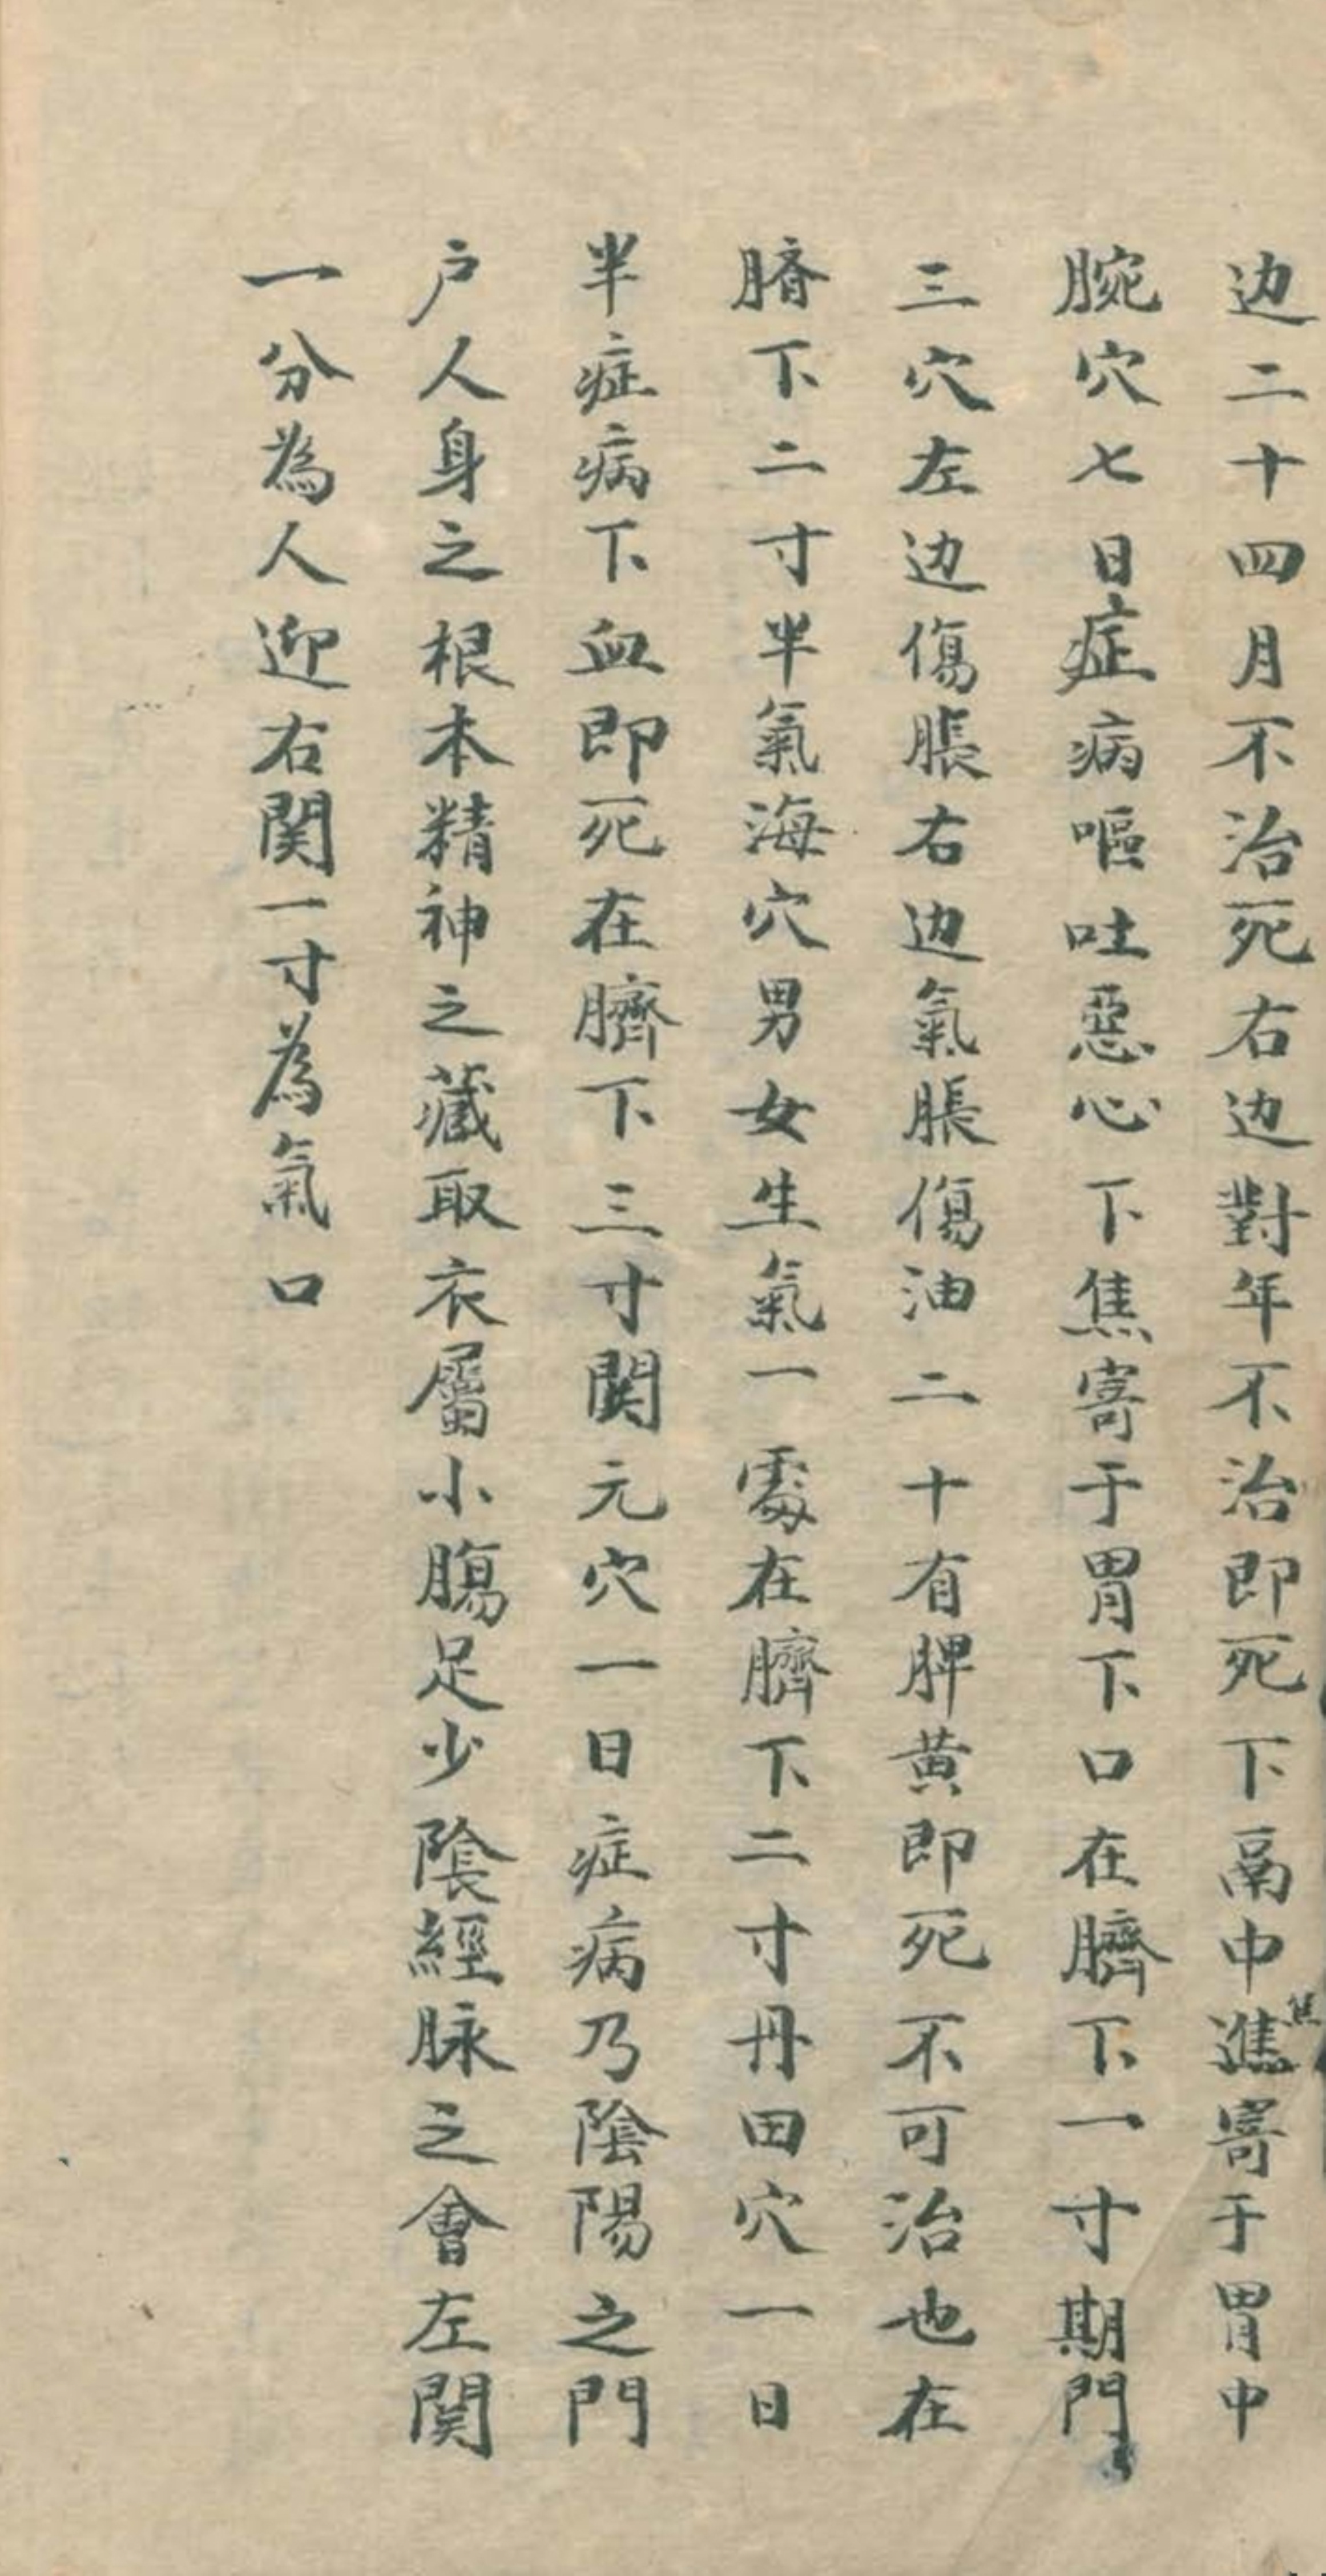 边二十四月不治死右边對年不治即死下鬲中進焦寄于胃中
腕穴七日症病嘔吐惡心下焦寄于胃下口在臍下一寸期門
三穴左边傷脹右边氣脹傷油二十有脾黄即死不可治也在
臍下二寸半氣海穴男女生氣一處在臍下二寸丹田穴一日
半症病下血即死在臍下三寸関元穴一日症病乃陰陽之門
户人身之根本精神之藏取衣屬小腸足少陰經脉之會左関
一分為人迎右関一寸為氣口